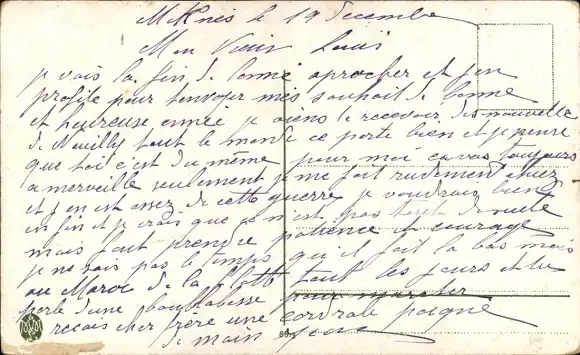 Meknès le 19 décembre
Mon Vieux Louis
je vois la fin de l'anné aprocher et j'en
profite pour t'envoyer mes souhait de bonne
et heureuse année je viens de recevoir des nouvelle
de Neuilly tout le monde ce porte bien et je pense
que toi c'est du même pour moi ca va toujours
a merveille seulement je me fait rudement chier
et j'en est assez de cette guerre je voudrais bien
en fin et je crois que je n'est pas tout de suite
mais faut prendre patience et courage
je ne sais pas le temps qu'il fait la bas mais
au Maroc de la flotte tout les jours et tu
parle d'une bouillabesse pour marcher
recois cher frère une cordiale poigné
de main